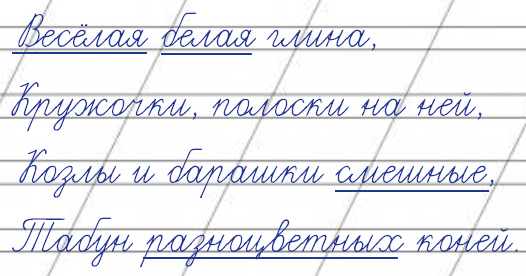 Весёлая белая глина,
Кружочки, полоски на ней,
Козлы и барашки смешные,
Табун разноцветных коней.